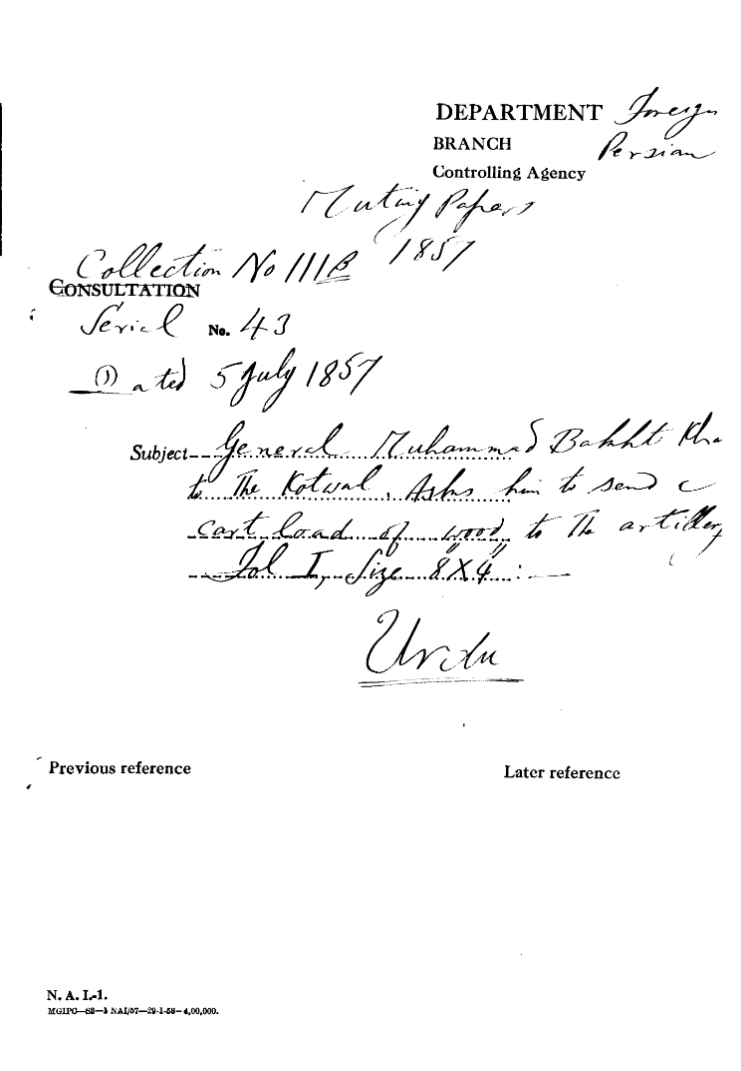 DEPARTMENT Foreign
BRANCH Persian
Controlling Agency
Mutiny Papers
1857
Collection No IIIB
CONSULTATION
Serial No. 43
Dated 5 July 1857
Subject General Muhammad Bakht Kha
to The Kotwal. Asks him to send a
cart load of wood, to The artillery
Fol I, Size 8"X4":—
Urdu
Previous reference
Later reference
N. A. I.-1.
MGIPC—S2—1 NAI/57—29-1-58—4,00,000.